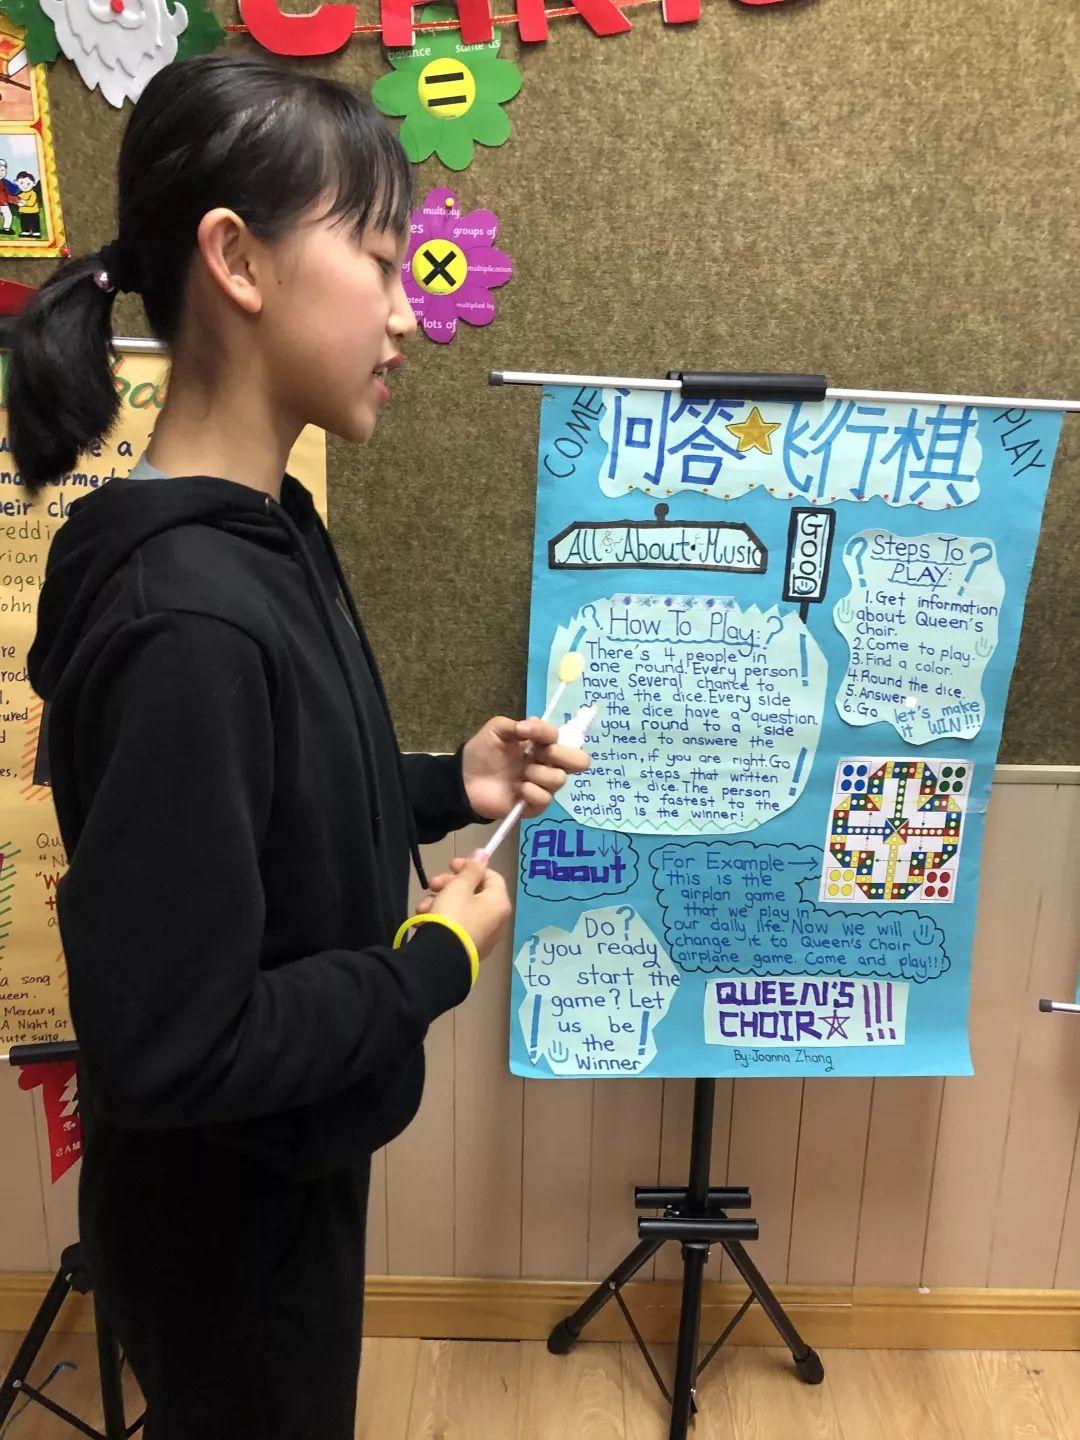 CHRIS
balance
same as
multiply
groups of
multiplication
multiplied by
lots of
COME
问答飞行棋
PLAY
All About Music
GOOD
Steps To
PLAY:
1. Get information
about Queen's
Choir.
2. Come to play.
3. Find a color.
4. Round the dice.
5. Answer
6. Go
let's make
it WIN!!!
? How To Play:?
There's 4 people in
one round. Every person
have Several chance to
round the dice. Every side
the dice have a question
you round to a side
need to answere the
if you are right. Go
several steps that written
on the dice. The person
who go to fastest to the
ending is the winner!
ALL ↓↓
About
For Example →
this is the
airplan game
that we play in
our daily life. Now we will
change it to Queen's Choir
airplane game. Come and play!!!
Do ?
? you ready
to start the
game? Let
us be
the
Winner
QUEEN'S !!!
CHOIR☆
By: Joanna Zhang
a song
Mercury
A Night at